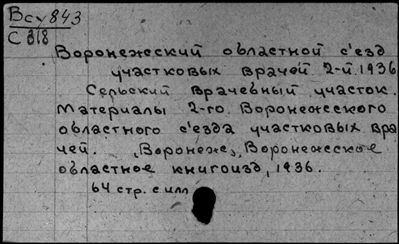 Всу 843
С 818
Воронежский областной с'езд
участковых врачей 2-й 1936
Сельский врачебный участок.
Материалы 2-го Воронежского
областного с'езда участковых вра
чей. „Воронеж", Воронежское
областное книгоизд, 1936.
64 стр. с илл